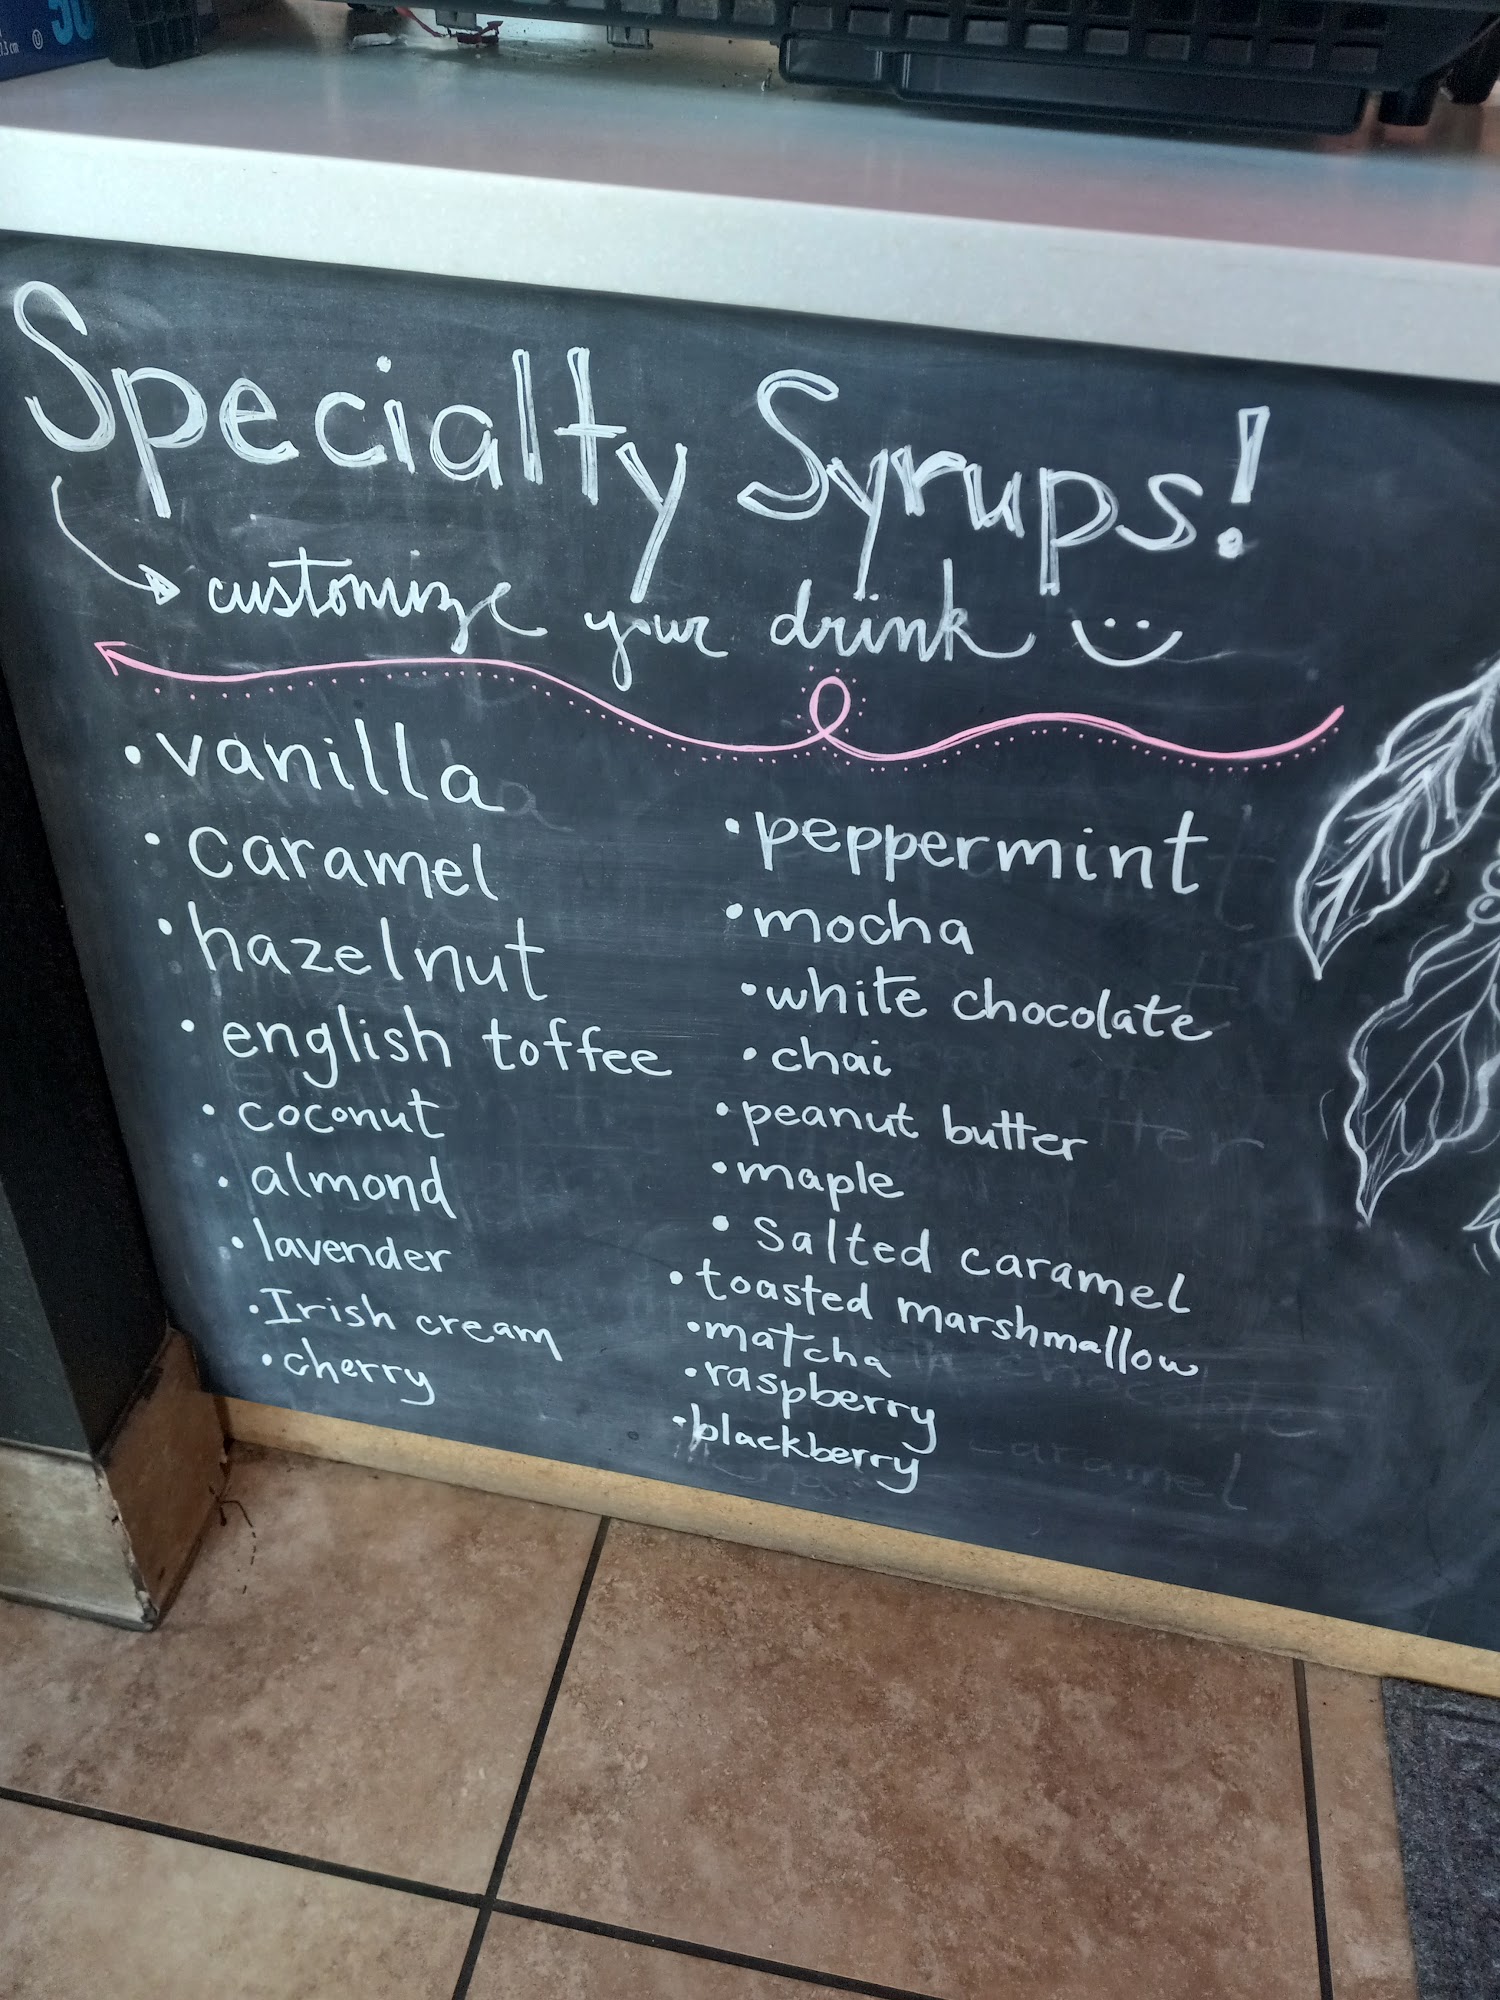 Specialty Syrups!
customize your drink
• vanilla
• caramel
• hazelnut
• english toffee
• coconut
• almond
• lavender
• Irish cream
• cherry
• peppermint
• mocha
• white chocolate
• chai
• peanut butter
• maple
• Salted caramel
• toasted marshmallow
• matcha
• raspberry
• blackberry